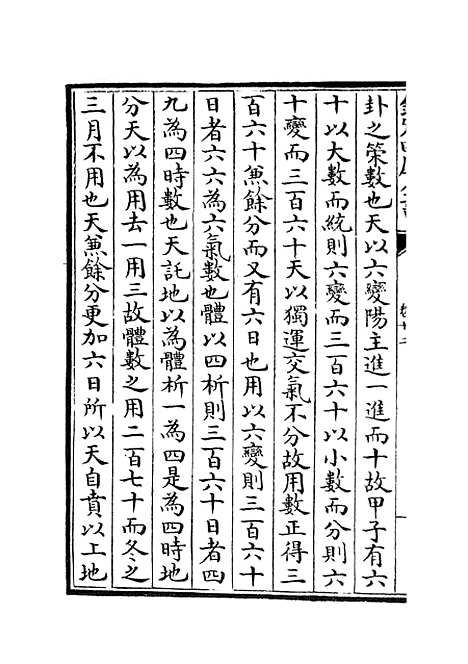 卦之策數也天以六變陽主進一進而十故甲子有六
十以大數而統則六變而三百六十以小數而分則六
十變而三百六十天以獨運交氣不分故用數正得三
百六十兼餘分而又有六日也用以六變則三百六十
日者六六為六氣數也體以四析則三百六十日者四
九為四時數也天託地以為體析一為四是為四時地
分天以為用去一用三故體數之用二百七十而冬之
三月不用也天兼餘分更加六日所以天自賁以上地